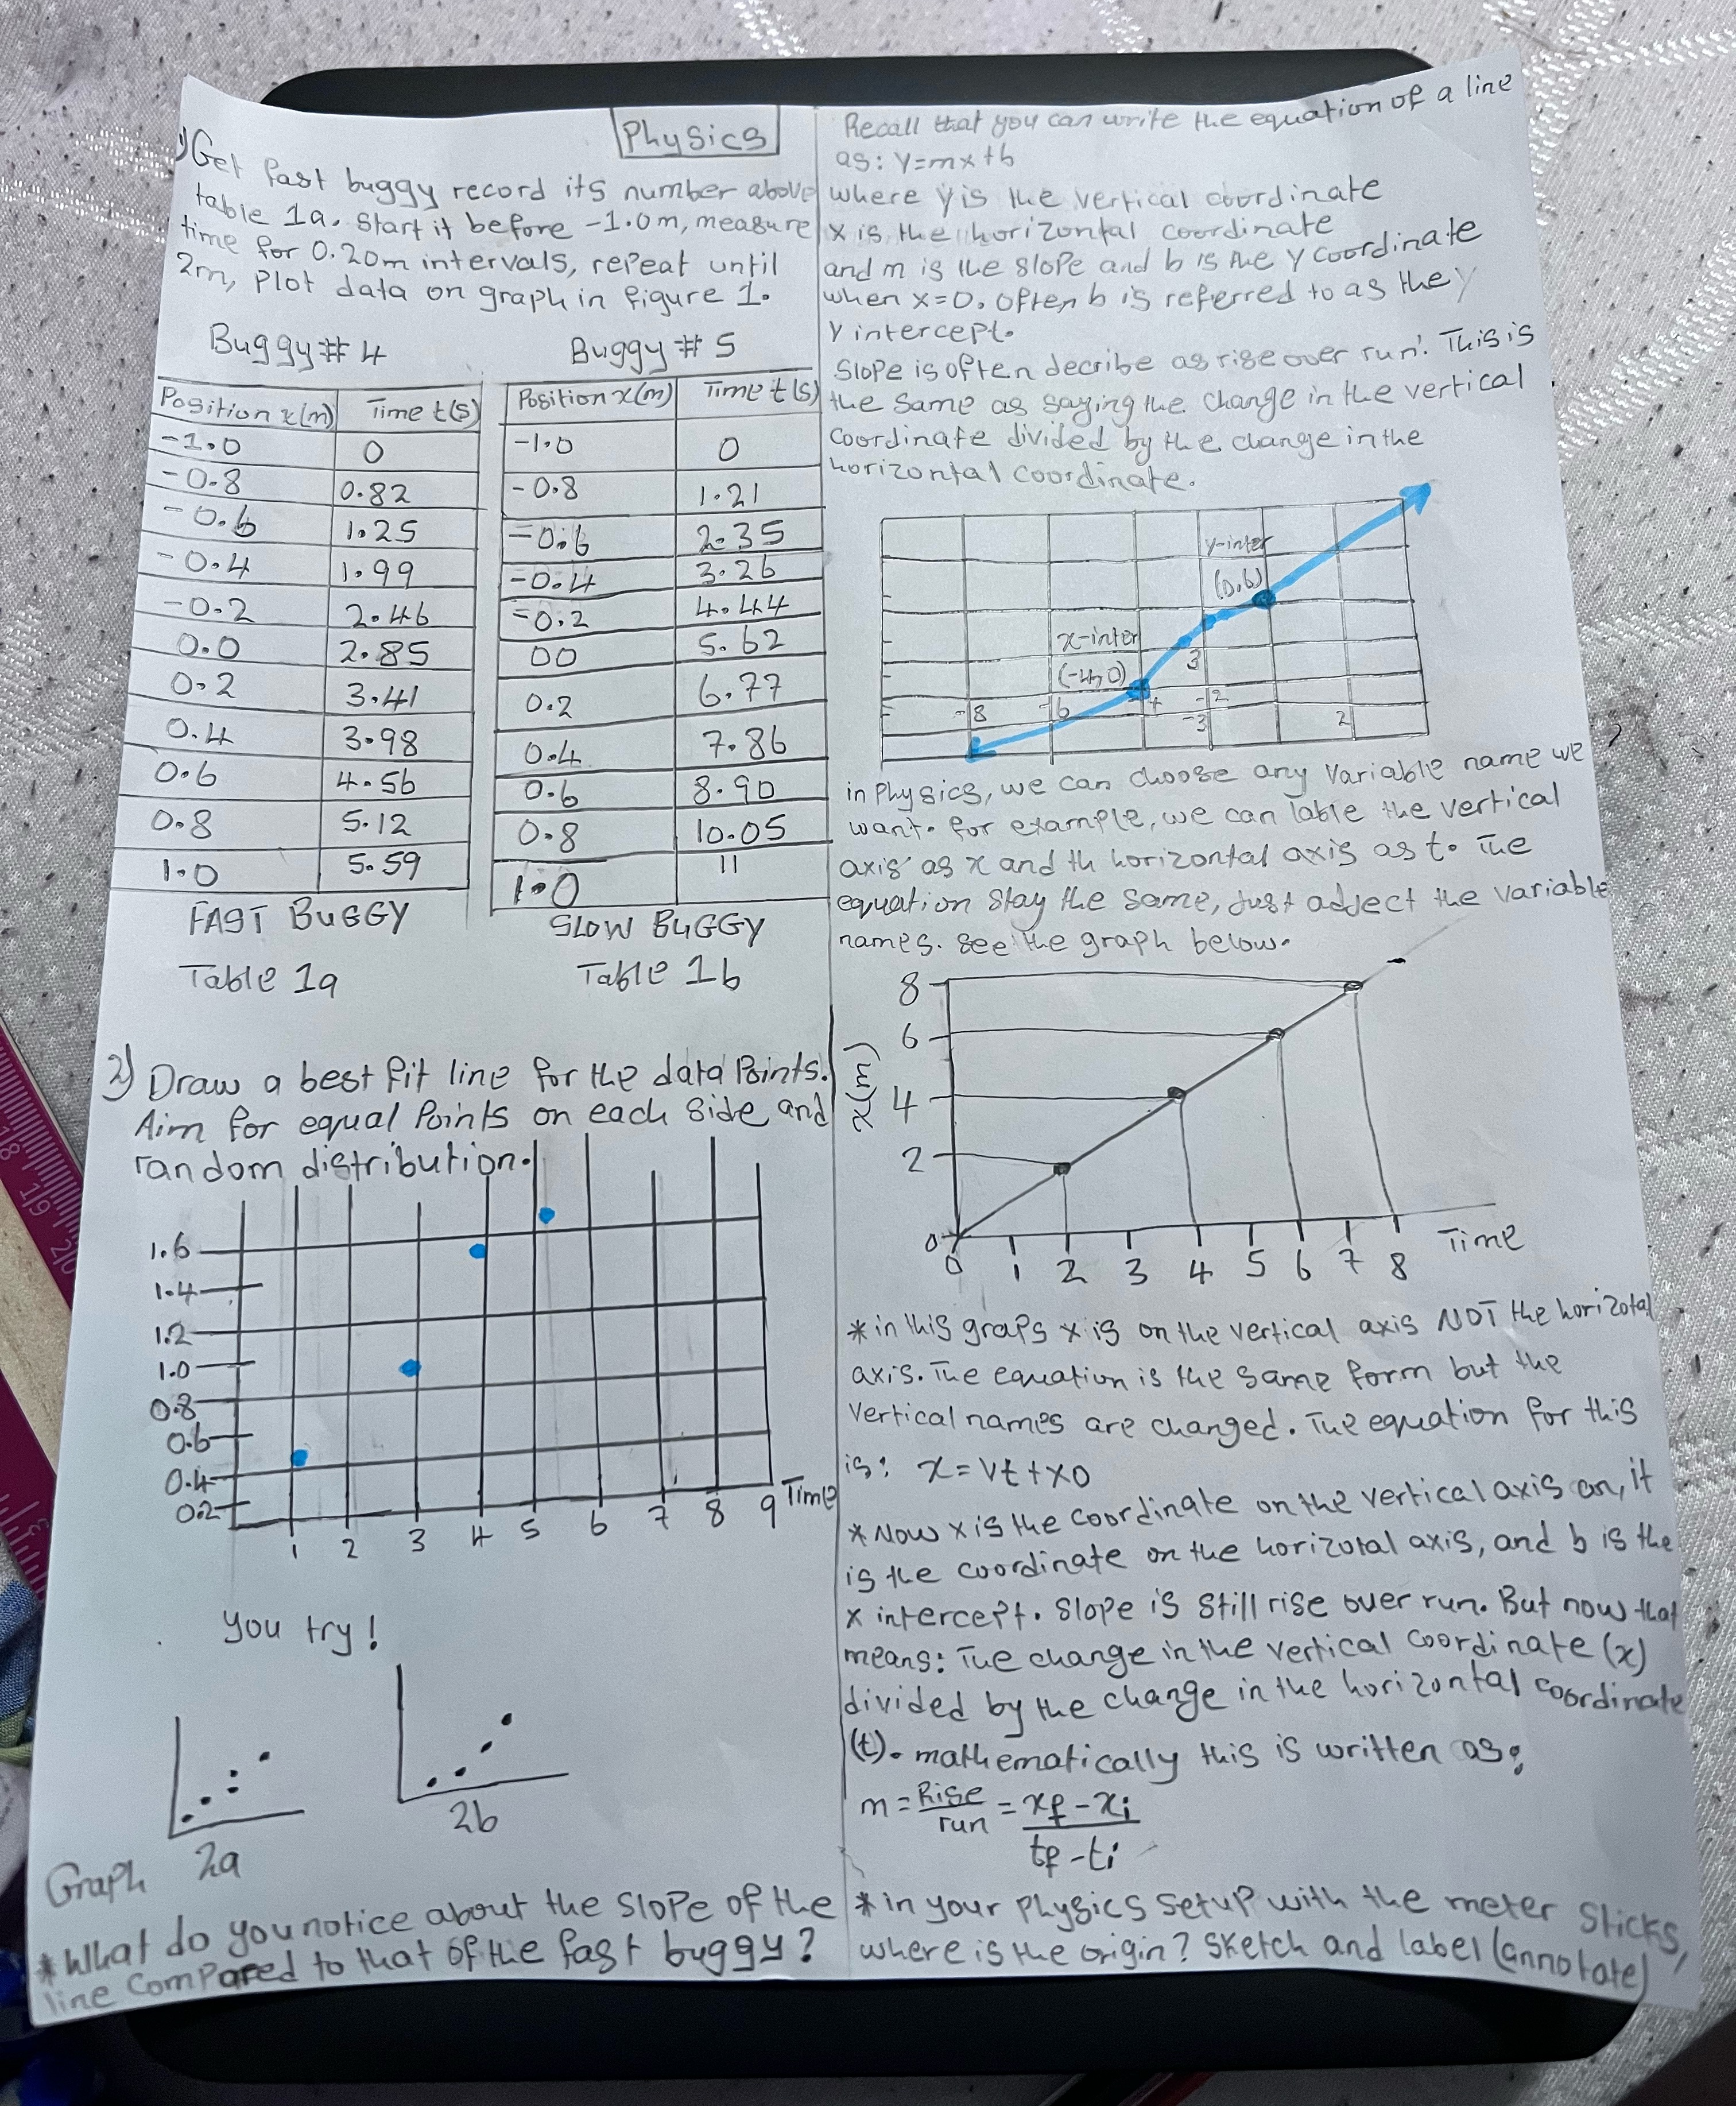 Physics
1) Get fast buggy record its number above
table 1a. Start it before -1.0m, measure
time for 0.20m intervals, repeat until
2m, Plot data on graph in figure 1.
Buggy # 4
Position x(m) Time t(s)
-1.0 0
-0.8 0.82
-0.6 1.25
-0.4 1.99
-0.2 2.46
0.0 2.85
0.2 3.41
0.4 3.98
0.6 4.56
0.8 5.12
1.0 5.59
FAST BUGGY
Table 1a
Buggy # 5
Position x(m) Time t(s)
-1.0 0
-0.8 1.21
-0.6 2.35
-0.4 3.26
-0.2 4.44
00 5.62
0.2 6.77
0.4 7.86
0.6 8.90
0.8 10.05
1.0 11
SLOW BUGGY
Table 1b
2) Draw a best fit line for the data Points.
Aim for equal Points on each side and
random distribution.
1.6
1.4
1.2
1.0
0.8
0.6
0.4
0.2
1 2 3 4 5 6 7 8 9 Time
you try!
Graph 2a
2b
* What do you notice about the slope of the
line compared to that of the fast buggy?
Recall that you can write the equation of a line
as: y=mx+b
where y is the vertical coordinate
x is the horizontal coordinate
and m is the slope and b is the y coordinate
when x=0. Often b is referred to as the y
y intercept.
Slope is often decribe as rise over run'. This is
the same as saying the change in the vertical
coordinate divided by the change in the
horizontal coordinate.
y-inter
(0,6)
x-inter
(-4,0)
3
-8 -6 -4 -2 2
-3
in Physics, we can choose any variable name we
want. for example, we can lable the vertical
axis as x and th horizontal axis as t. The
equation stay the same, just adject the variable
names. see the graph below.
8
6
4
2
0
x(m)
0 1 2 3 4 5 6 7 8 Time
* in this graps x is on the vertical axis NOT the horizotal
axis. The equation is the same form but the
vertical names are changed. The equation for this
is: x = vt + x0
* Now x is the coordinate on the vertical axis on, it
is the coordinate on the horizotal axis, and b is the
x intercept. Slope is still rise over run. But now that
means: The change in the vertical coordinate (x)
divided by the change in the horizontal coordinate
(t). mathematically this is written as:
m = Rise/run = xf - xi / tf - ti
* in your physics setup with the meter sticks,
where is the origin? Sketch and label (annotate)
18
19
20